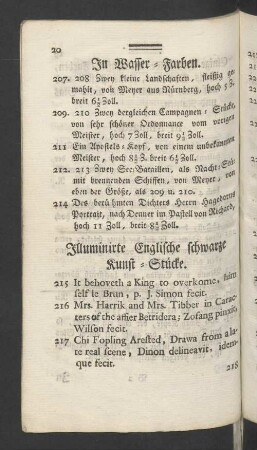 20
In Wasser-Farben.
207. 208 Zwey kleine Landschaften, fleissig ge-
mahlt, von Meyer aus Nürnberg, hoch 5 Z.
breit 6½ Zoll.
209. 210 Zwey dergleichen Campagnen-Stücke,
von sehr schöner Ordonnance vom vorigen
Meister, hoch 7 Zoll, breit 9½ Zoll.
211 Ein Apostels-Kopf, von einem unbekannten
Meister, hoch 8½ Z. breit 6½ Zoll.
212. 213 Zwey See-Batailien, als Nacht-Stücke
mit brennenden Schiffen, von Meyer, von
eben der Größe, als 209 u. 210.
214 Des berühmten Dichters Herrn Hagedorns
Portrait, nach Denner im Pastell von Richard,
hoch 11 Zoll, breit 8½ Zoll.
Illuminirte Englische schwarze
Kunst-Stücke.
215 It behoveth a King to overkome, him
self le Brun, p. J. Simon fecit.
216 Mrs. Harrik and Mrs. Tibber in Carac-
ters of the affier Betridera; Zofang pinxit,
Wilson fecit.
217 Chi Fopling Arested, Drawa from a la-
te real scene, Dinon delineavit, idem-
que fecit.
218